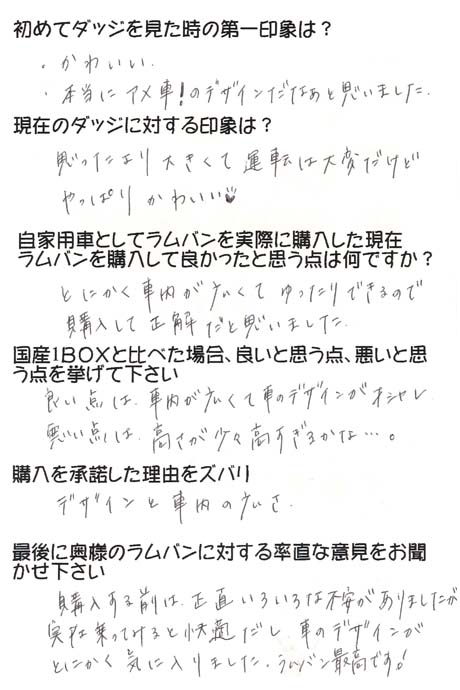 初めてダッジを見た時の第一印象は？
・かわいい.
・本当にアメ車！のデザインだなぁと思いました.
現在のダッジに対する印象は？
思ったより大きくて運転は大変だけど
やっぱりかわいい♥
自家用車としてラムバンを実際に購入した現在
ラムバンを購入して良かったと思う点は何ですか？
とにかく車内が広くてゆったりできるので
購入して正解だと思いました.
国産1BOXと比べた場合、良いと思う点、悪いと思
う点を挙げて下さい
良い点は、車内が広くて車のデザインがオシャレ.
悪い点は、高さが少々高すぎるかな…。
購入を承諾した理由をズバリ
デザインと車内の広さ.
最後に奥様のラムバンに対する率直な意見をお聞
かせ下さい
購入する前は、正直いろいろな不安がありましたが
実際乗ってみると快適だし、車のデザインが
とにかく気に入りました.ラムバン最高です！